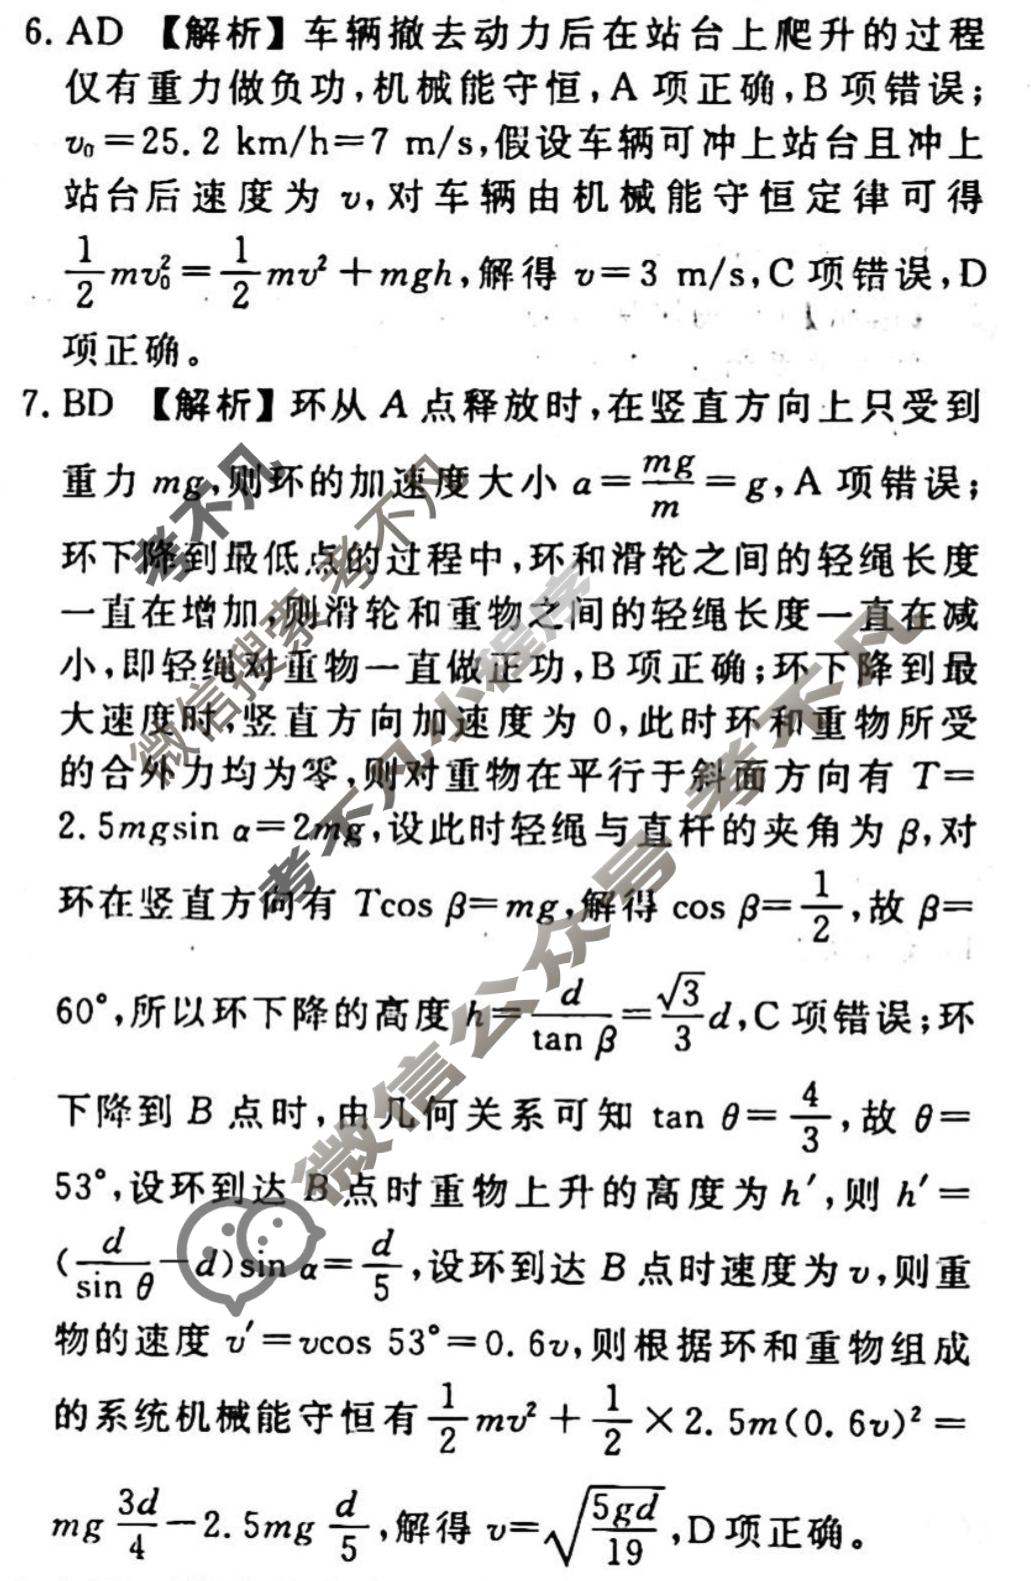 6. AD 【解析】车辆撤去动力后在站台上爬升的过程
仅有重力做负功,机械能守恒,A 项正确,B 项错误;
v₀=25.2 km/h=7 m/s,假设车辆可冲上站台且冲上
站台后速度为 v,对车辆由机械能守恒定律可得
1/2 mv₀²=1/2 mv²+mgh,解得 v=3 m/s,C 项错误,D
项正确。
7. BD 【解析】环从 A 点释放时,在竖直方向上只受到
重力 mg,则环的加速度大小 a=mg/m=g,A 项错误;
环下降到最低点的过程中,环和滑轮之间的轻绳长度
一直在增加,则滑轮和重物之间的轻绳长度一直在减
小,即轻绳对重物一直做正功,B 项正确;环下降到最
大速度时,竖直方向加速度为 0,此时环和重物所受
的合外力均为零,则对重物在平行于斜面方向有 T=
2.5mgsin α=2mg,设此时轻绳与直杆的夹角为 β,对
环在竖直方向有 Tcos β=mg,解得 cos β=1/2,故 β=
60°,所以环下降的高度 h=d/tan β=√3/3 d,C 项错误;环
下降到 B 点时,由几何关系可知 tan θ=4/3,故 θ=
53°,设环到达 B 点时重物上升的高度为 h′,则 h′=
(d/sin θ-d)sin α=d/5,设环到达 B 点时速度为 v,则重
物的速度 v′=vcos 53°=0.6v,则根据环和重物组成
的系统机械能守恒有 1/2 mv²+1/2×2.5m(0.6v)²=
mg 3d/4-2.5mg d/5,解得 v=√(5gd/19),D 项正确。
考不凡
微信搜索 考不凡
考不凡小程序
微信公众号 考不凡